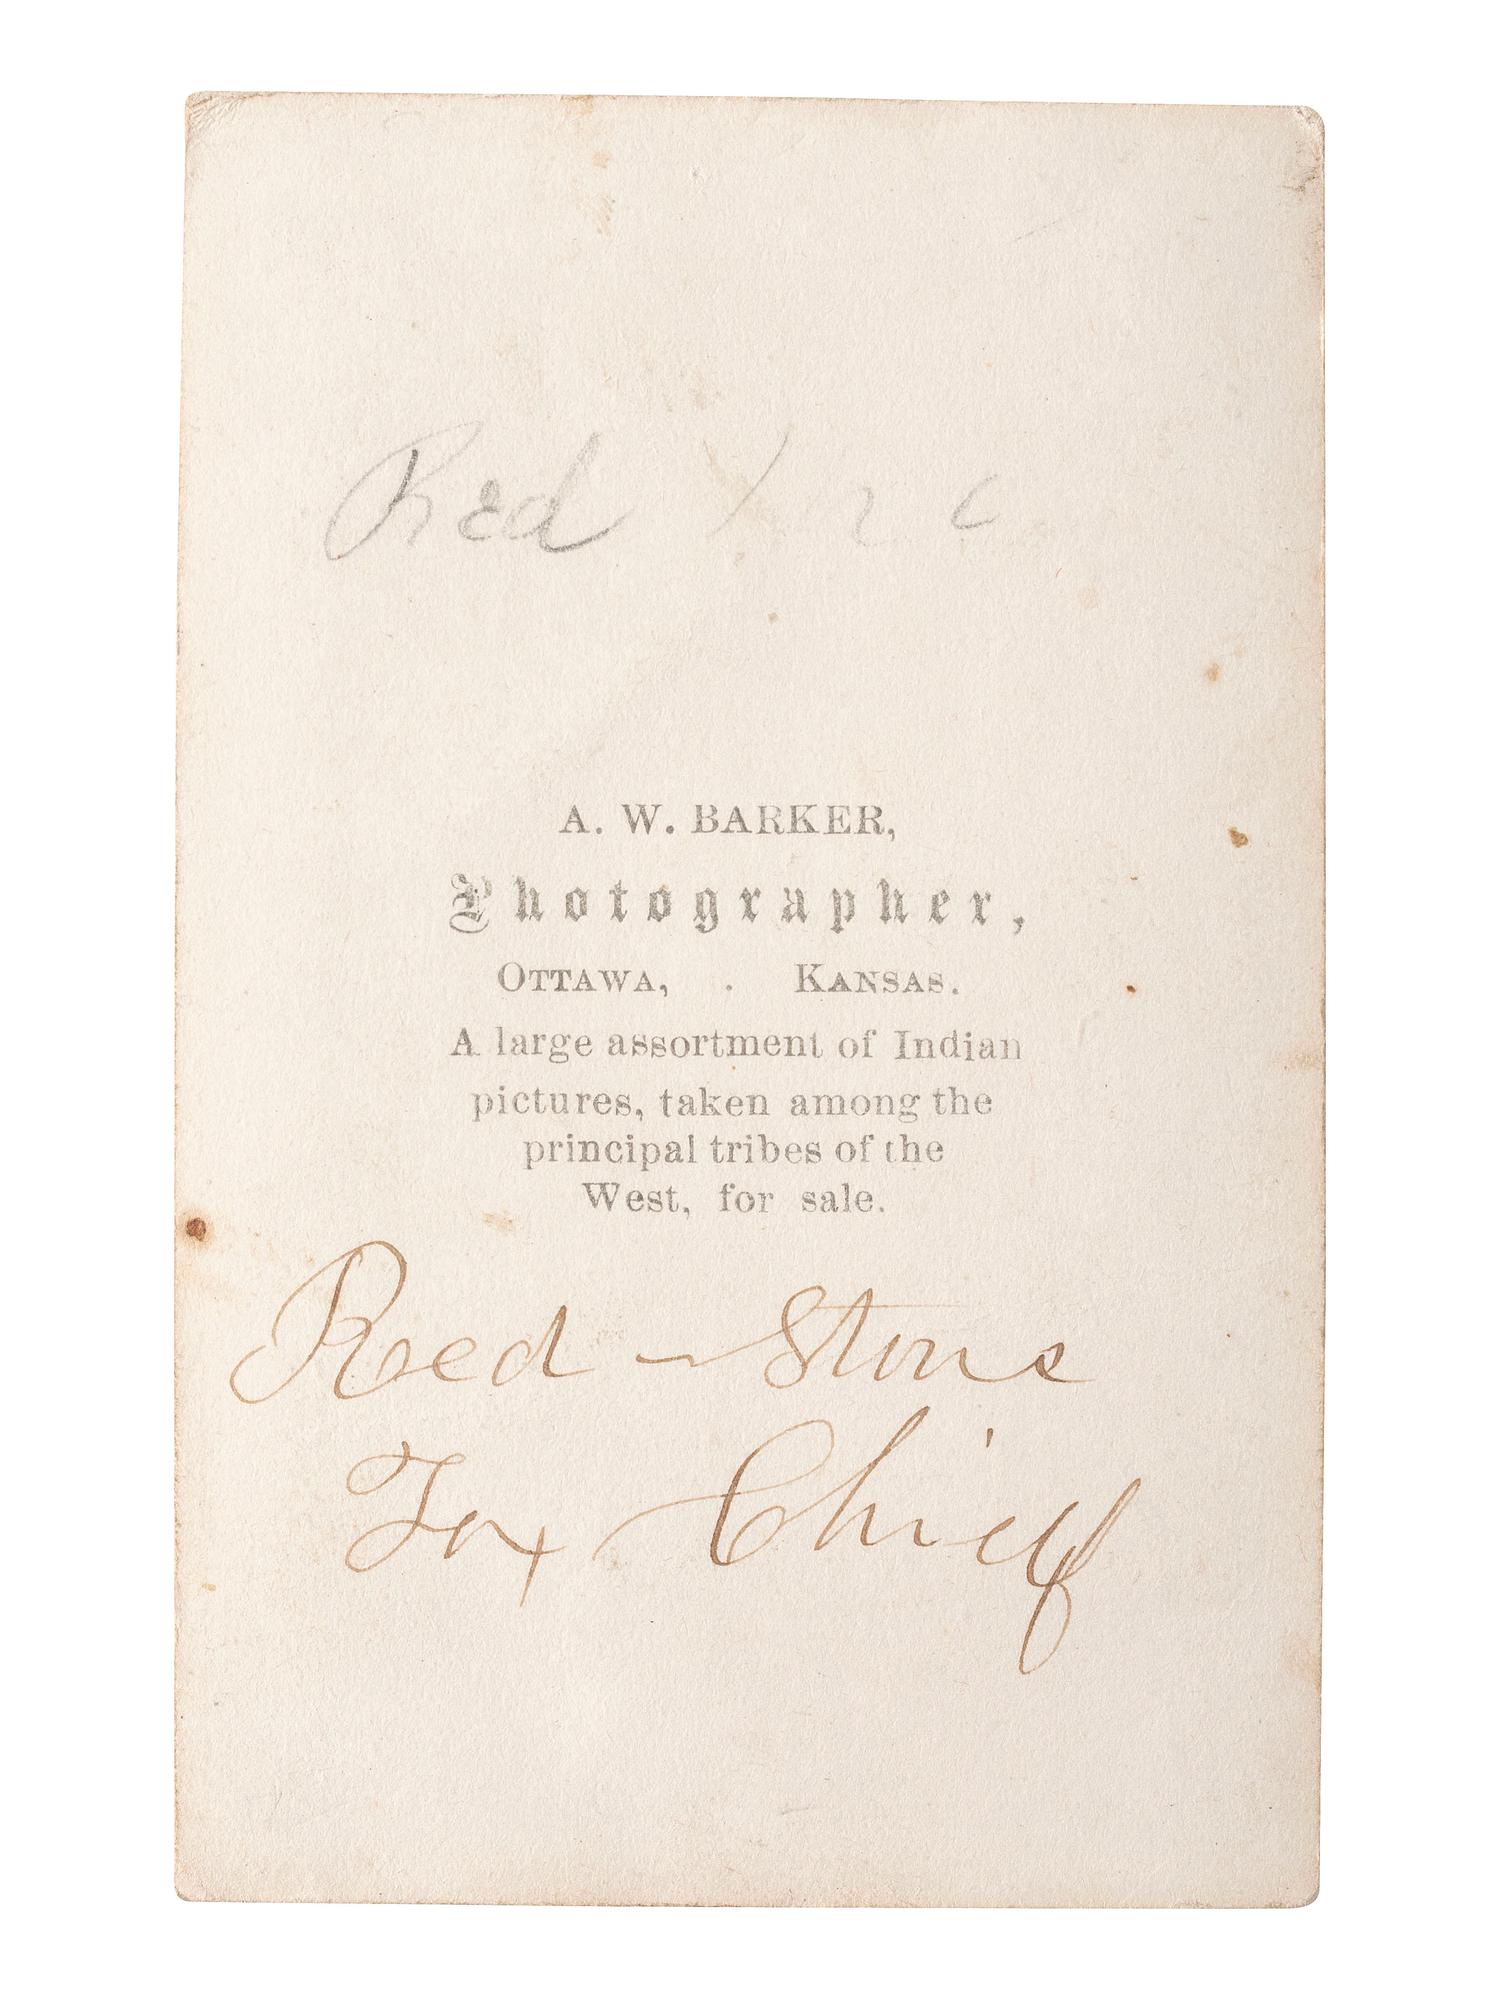 Red
A. W. BARKER,
Photographer,
OTTAWA, . KANSAS.
A large assortment of Indian
pictures, taken among the
principal tribes of the
West, for sale.
Red - Stone
Fox Chief